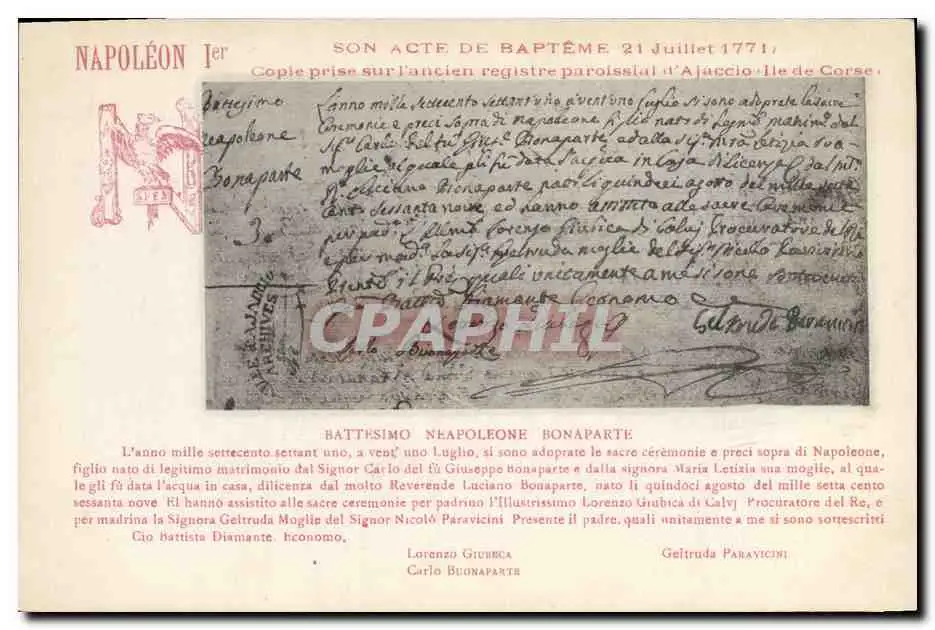 NAPOLÉON Ier
SON ACTE DE BAPTÊME 21 Juillet 1771
Copie prise sur l'ancien registre paroissial d'Ajaccio (Ile de Corse)
SPES
Battesimo
Neapoleone
Bonaparte
3.
L'anno mille settecento settant'uno a vent'uno Luglio si sono adoprate le sacre
Ceremonie e preci sopra di Napoleone figlio nato di legmo matrimo dal
Sigr Carlo del fu Gius.e Bonaparte e dalla Sig.ra M.ra Letizia sua
moglie al quale gli fu data l'acqua in casa di licenza dal
Luciano Bonaparte nato li quindici agosto del mille sette
cento sessanta nove, ed hanno assistito alle sacre Ceremonie
per pad.o l' Illmo Lorenzo Giubica di Calvj Procuratore del Re
e per mad.a la Sig.a Geltruda moglie del Sig. Nicolo Paravicini
il Pre quali unitamente a me si sono sottoscritti
Battta Diamante Economo
Lorenzo
Geltruda Paravicini
Carlo Buonaparte
VILLE D'AJACCIO
ARCHIVES
CPAPHIL
BATTESIMO NEAPOLEONE BONAPARTE
L'anno mille settecento settant uno, a vent' uno Luglio, si sono adoprate le sacre cérémonie e preci sopra di Napoleone,
figlio nato di legitimo matrimonio dal Signor Carlo del fù Giuseppe Bonaparte e dalla signora Maria Letizia sua moglie, al qua-
le gli fù data l'acqua in casa, dilicenza dal molto Reverende Luciano Bonaparte, nato li quindòci agosto del mille setta cento
sessanta nove El hanno assistito alle sacre ceremonie per padrino l'Illustrissimo Lorenzo Giubica di Calvj Procuratore del Re, e
per madrina la Signora Geltruda Moglie del Signor Nicoló Paravicini Presente il padre, quali unitamente a me si sono sottescritti
Gio Battista Diamante. Economo.
Lorenzo GIUBECA
Geltruda PARAVICINI
Carlo BUONAPARTE